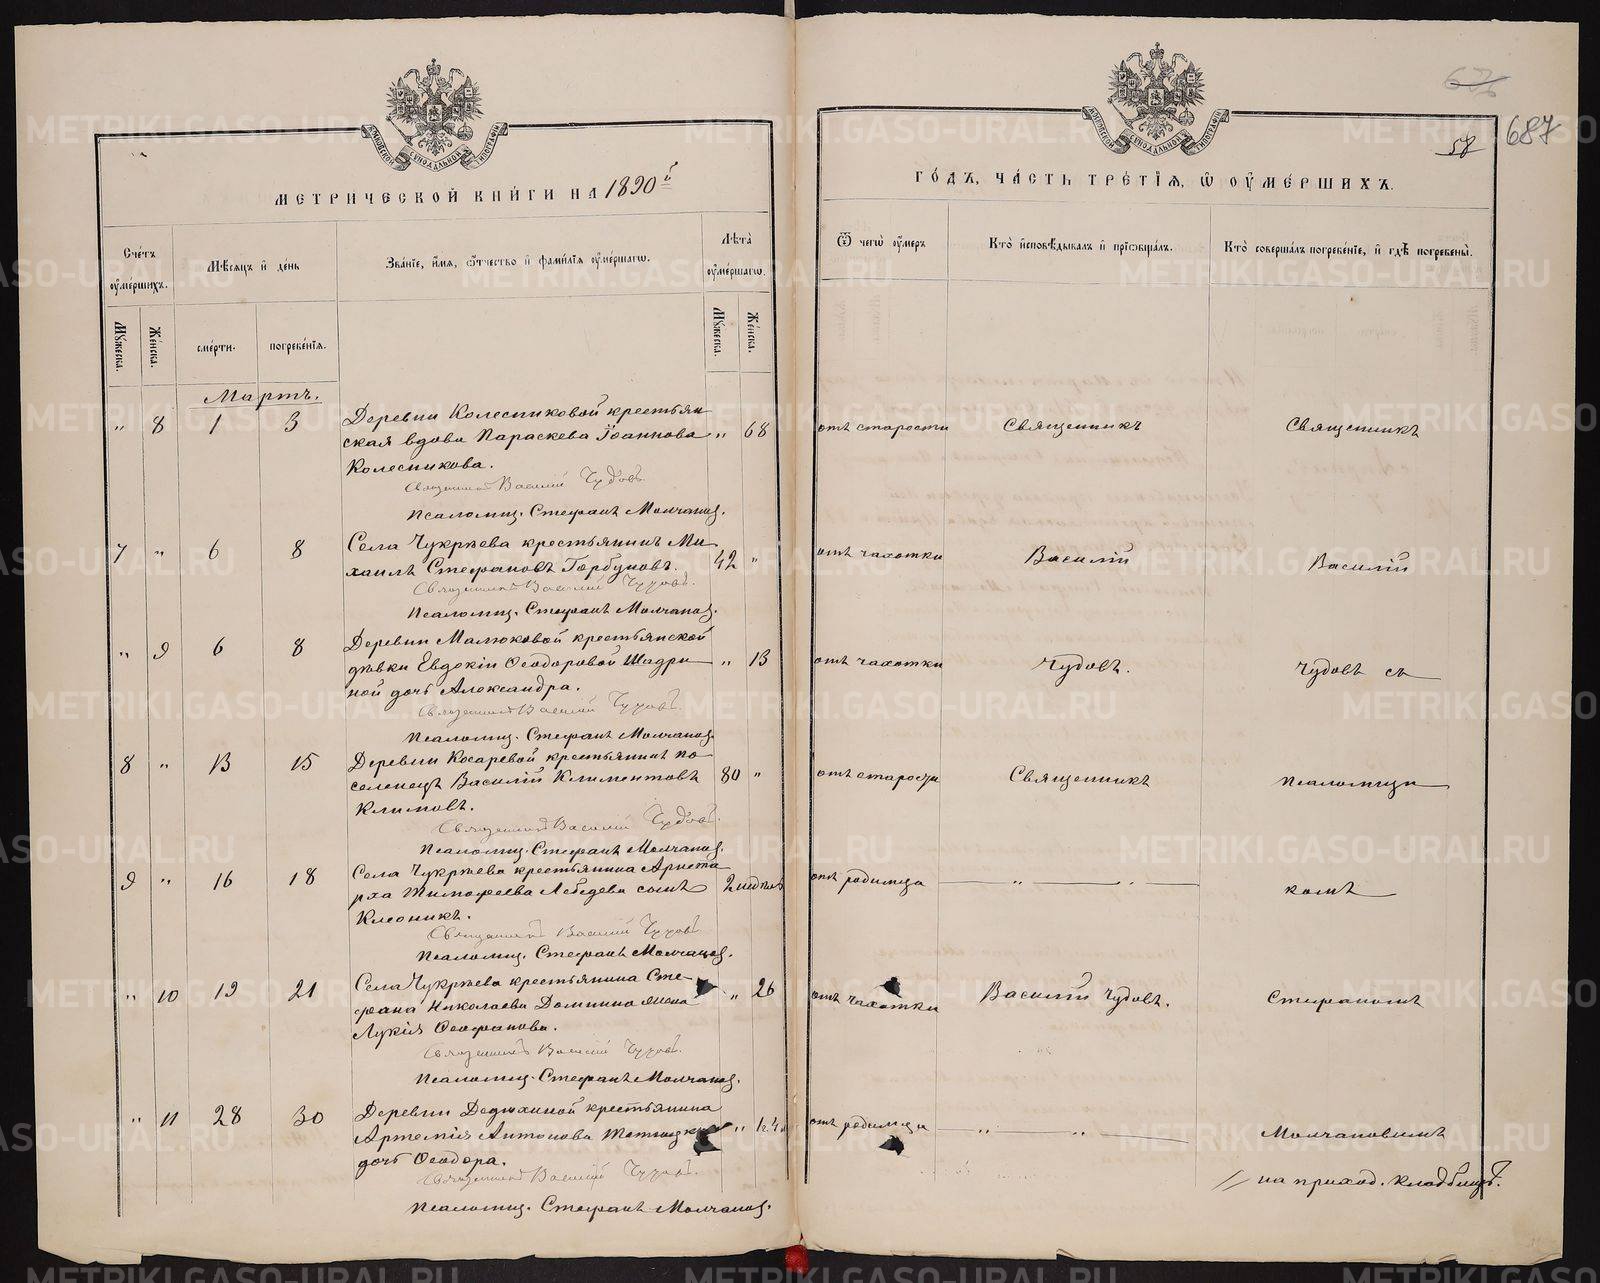 МЕТРИЧЕСКОЙ КНИГИ НА 1890й
Счетъ оумершихъ.
Мѣсяцъ и день
Званіе, имя, отчество и фамилія оумершагѡ.
Лѣта оумершагѡ.
Мужеска.
Женска.
смерти.
погребенія.
Мужеска.
Женска.
Мартъ.
„ 8 1 3 Деревни Колесниковой крестьян
ская вдова Параскева Іоаннова „ 68
Колесникова.
Священникъ Василій Чудовъ
Псаломщ. Стефанъ Молчановъ.
7 „ 6 8 Села Чукрѣева крестьянинъ Ми
хаилъ Стефановъ Горбуновъ. 42 „
Священникъ Василій Чудовъ.
Псаломщ. Стефанъ Молчановъ.
„ 9 6 8 Деревни Малюковой крестьянской
дѣвки Евдокіи Ѳеодоровой Шадри „ 13
ной дочь Александра.
Священникъ Василій Чудовъ.
Псаломщ. Стефанъ Молчановъ.
8 „ 13 15 Деревни Косаревой крестьянинъ по
селенецъ Василій Климентовъ 80 „
Климовъ.
Священникъ Василій Чудовъ.
Псаломщ. Стефанъ Молчановъ.
9 „ 16 18 Села Чукрѣева крестьянина Ариста
рха Тимофеева Лебедева сынъ 2 нидѣль
Клеоникъ.
Священникъ Василій Чудовъ
Псаломщ. Стефанъ Молчановъ.
„ 10 19 21 Села Чукрѣева крестьянина Сте-
фана Николаева Домнина жена „ 26
Лукія Ѳеофанова.
Священникъ Василій Чудовъ.
Псаломщ. Стефанъ Молчановъ.
„ 11 28 30 Деревни Дедюхиной крестьянина
Артемія Антонова „
дочь Ѳеодора.
Священникъ Василій Чудовъ.
Псаломщ. Стефанъ Молчановъ.
63
58
687
ГОДЪ, ЧАСТЬ ТРЕТІЯ, Ѡ ОУМЕРШИХЪ.
Ѿ чегѡ оумеръ
Кто исповѣдывалъ и пріѡбщалъ.
Кто совершалъ погребеніе, и гдѣ погребены.
отъ старости Священникъ Священникъ
отъ чахотки Василій Василій
отъ чахотки Чудовъ. Чудовъ съ
отъ старости Священникъ псаломщи
отъ родимца „ „ комъ
отъ чахотки Василій Чудовъ. Стефаномъ
отъ родимца „ „ Молчановымъ
// на приход. кладбищѣ.
METRIKI.GASO-URAL.RU